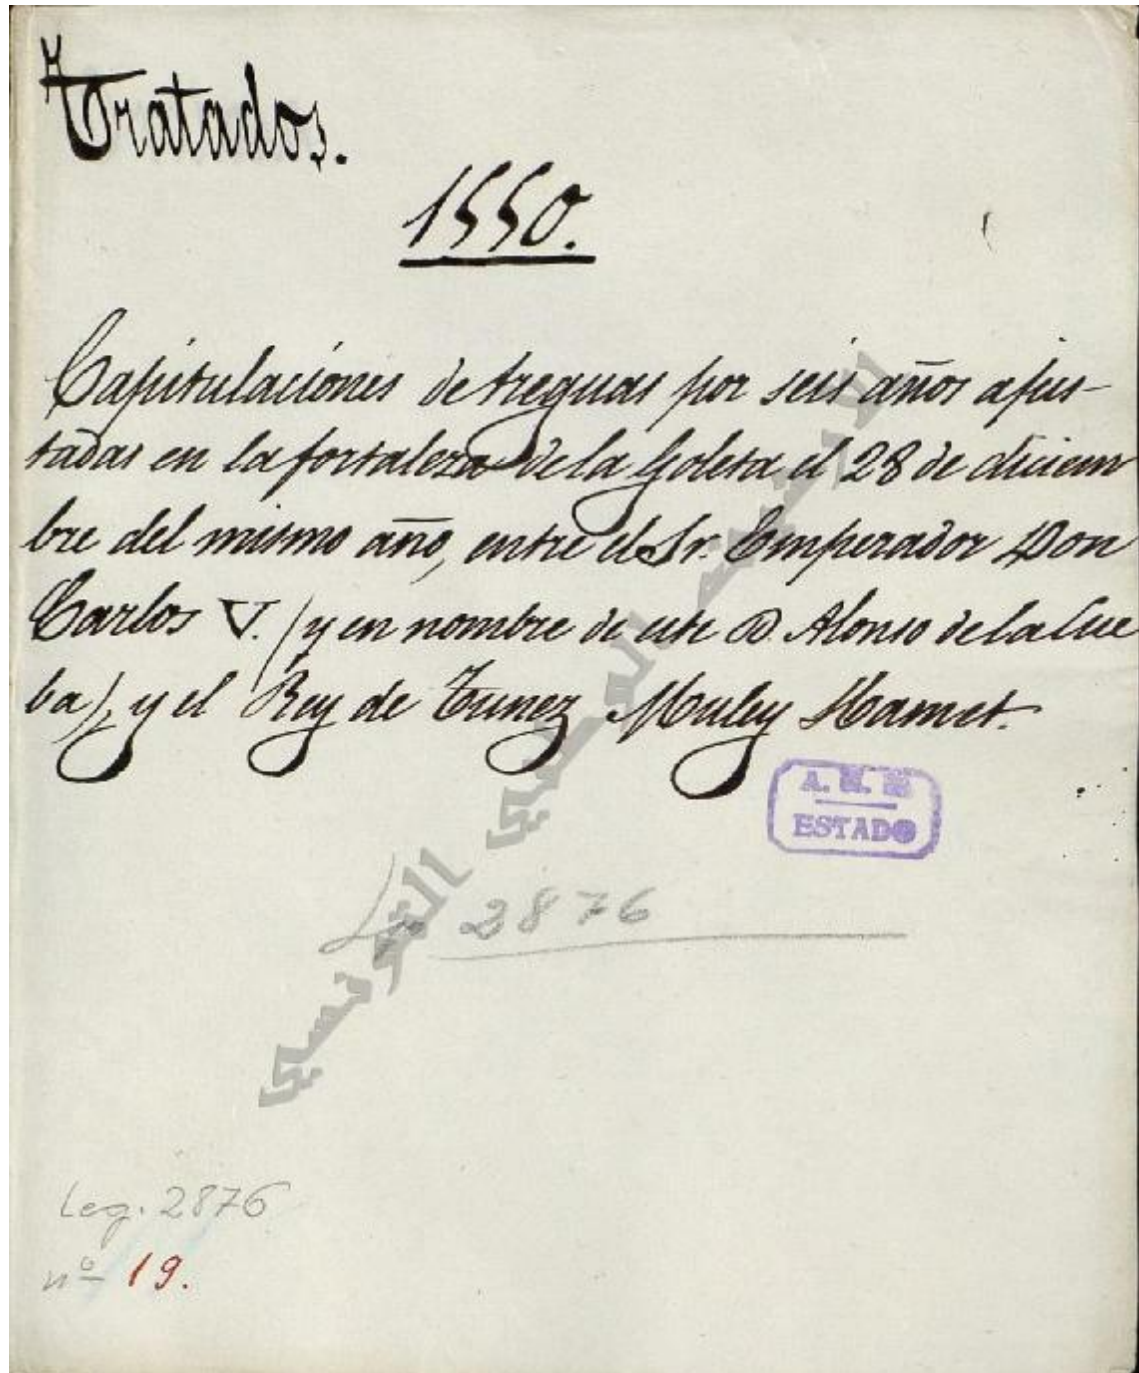 Tratados.
1550.
Capitulaciones de treguas por seis años ajus-
tadas en la fortaleza de la Goleta el 28 de diciem
bre del mismo año, entre el Sr. Emperador Don
Carlos V. (y en nombre de este D. Alonso de la Cue
ba), y el Rey de Tunez Muley Hamet.
A. H.
ESTADO
2876
التونسي
Leg. 2876
nº 19.